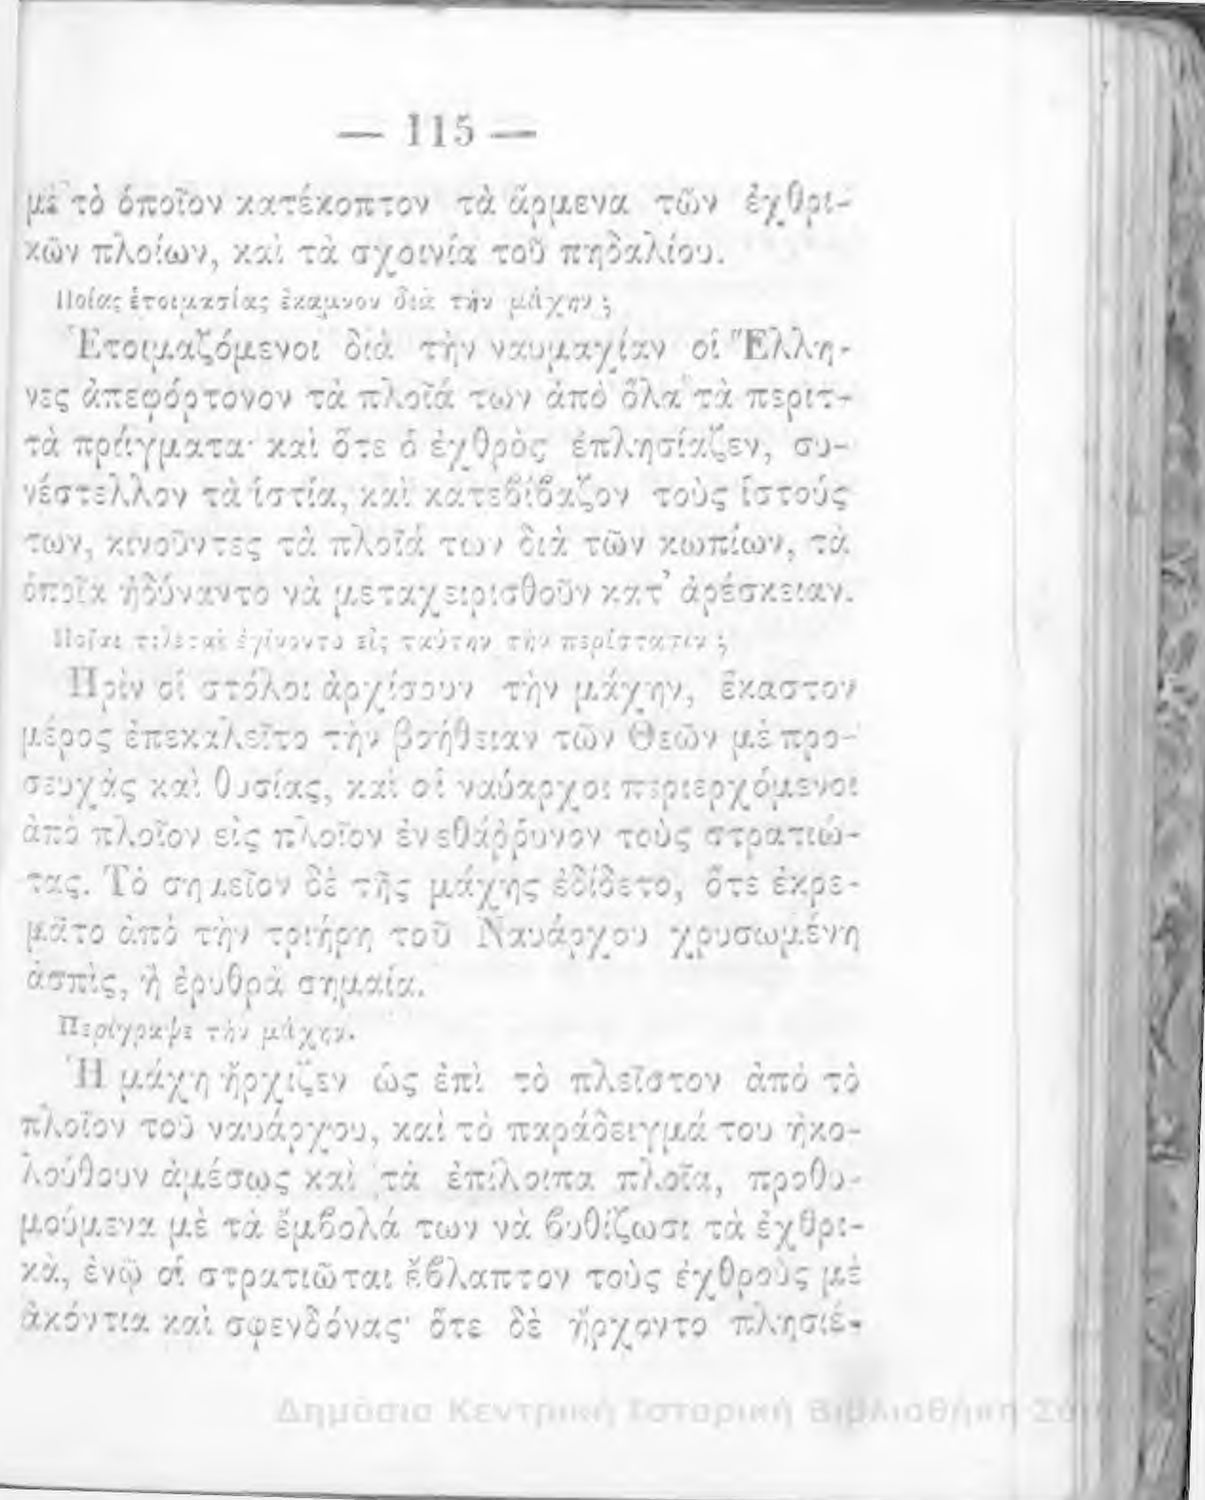 — 115 —
μὲ τὸ ὁποῖον κατέκοπτον τὰ ἄρμενα τῶν ἐχθρι-
κῶν πλοίων, καὶ τὰ σχοινία τοῦ πηδαλίου.
Ποίας ἑτοιμασίας ἔκαμνον διὰ τὴν μάχην ;
Ἑτοιμαζόμενοι διὰ τὴν ναυμαχίαν οἱ Ἕλλη-
νες ἀπεφόρτονον τὰ πλοῖά των ἀπὸ ὅλα τὰ περιτ-
τὰ πράγματα· καὶ ὅτε ὁ ἐχθρὸς ἐπλησίαζεν, συ-
νέστελλον τὰ ἱστία, καὶ κατεβίβαζον τοὺς ἱστούς
των, κινοῦντες τὰ πλοῖά των διὰ τῶν κωπίων, τὰ
ὁποῖα ἠδύναντο νὰ μεταχειρισθοῦν κατ' ἀρέσκειαν.
Ποῖαι τελεταὶ ἐγίνοντο εἰς ταύτην τὴν περίστασιν ;
Πρὶν οἱ στόλοι ἀρχίσουν τὴν μάχην, ἕκαστον
μέρος ἐπεκαλεῖτο τὴν βοήθειαν τῶν Θεῶν μὲ προ-
σευχὰς καὶ θυσίας, καὶ οἱ ναύαρχοι περιερχόμενοι
ἀπὸ πλοῖον εἰς πλοῖον ἐνεθάῤῥυνον τοὺς στρατιώ-
τας. Τὸ σημεῖον δὲ τῆς μάχης ἐδίδετο, ὅτε ἐκρε-
μᾶτο ἀπὸ τὴν τριήρη τοῦ Ναυάρχου χρυσωμένη
ἀσπὶς, ἢ ἐρυθρὰ σημαία.
Περίγραψε τὴν μάχην.
Ἡ μάχη ἤρχιζεν ὡς ἐπὶ τὸ πλεῖστον ἀπὸ τὸ
πλοῖον τοῦ ναυάρχου, καὶ τὸ παράδειγμά του ἠκο-
λούθουν ἀμέσως καὶ τὰ ἐπίλοιπα πλοῖα, προθυ-
μούμενα μὲ τὰ ἔμβολά των νὰ βυθίζωσι τὰ ἐχθρι-
κὰ, ἐνῷ οἱ στρατιῶται ἔβλαπτον τοὺς ἐχθροὺς μὲ
ἀκόντια καὶ σφενδόνας· ὅτε δὲ ἤρχοντο πλησιέ-
Δημόσια Κεντρική Ιστορική Βιβλιοθήκη